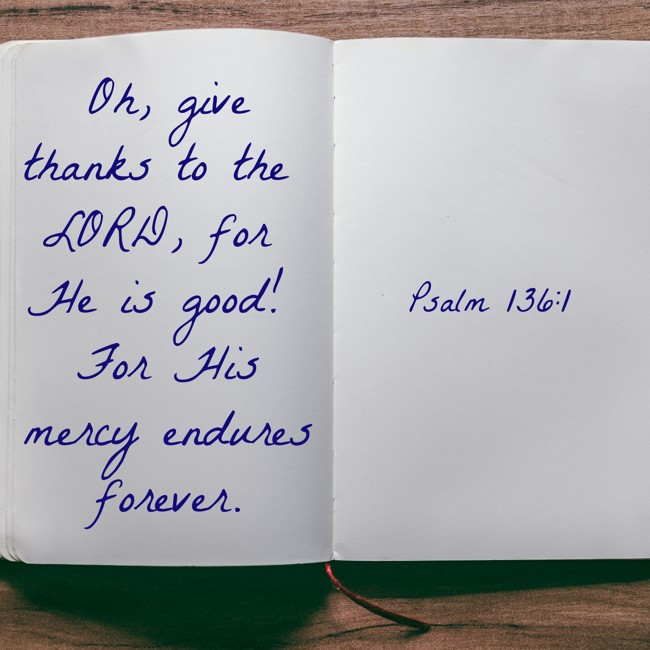 Oh, give
thanks to the
LORD, for
He is good!
For His
mercy endures
forever.
Psalm 136:1